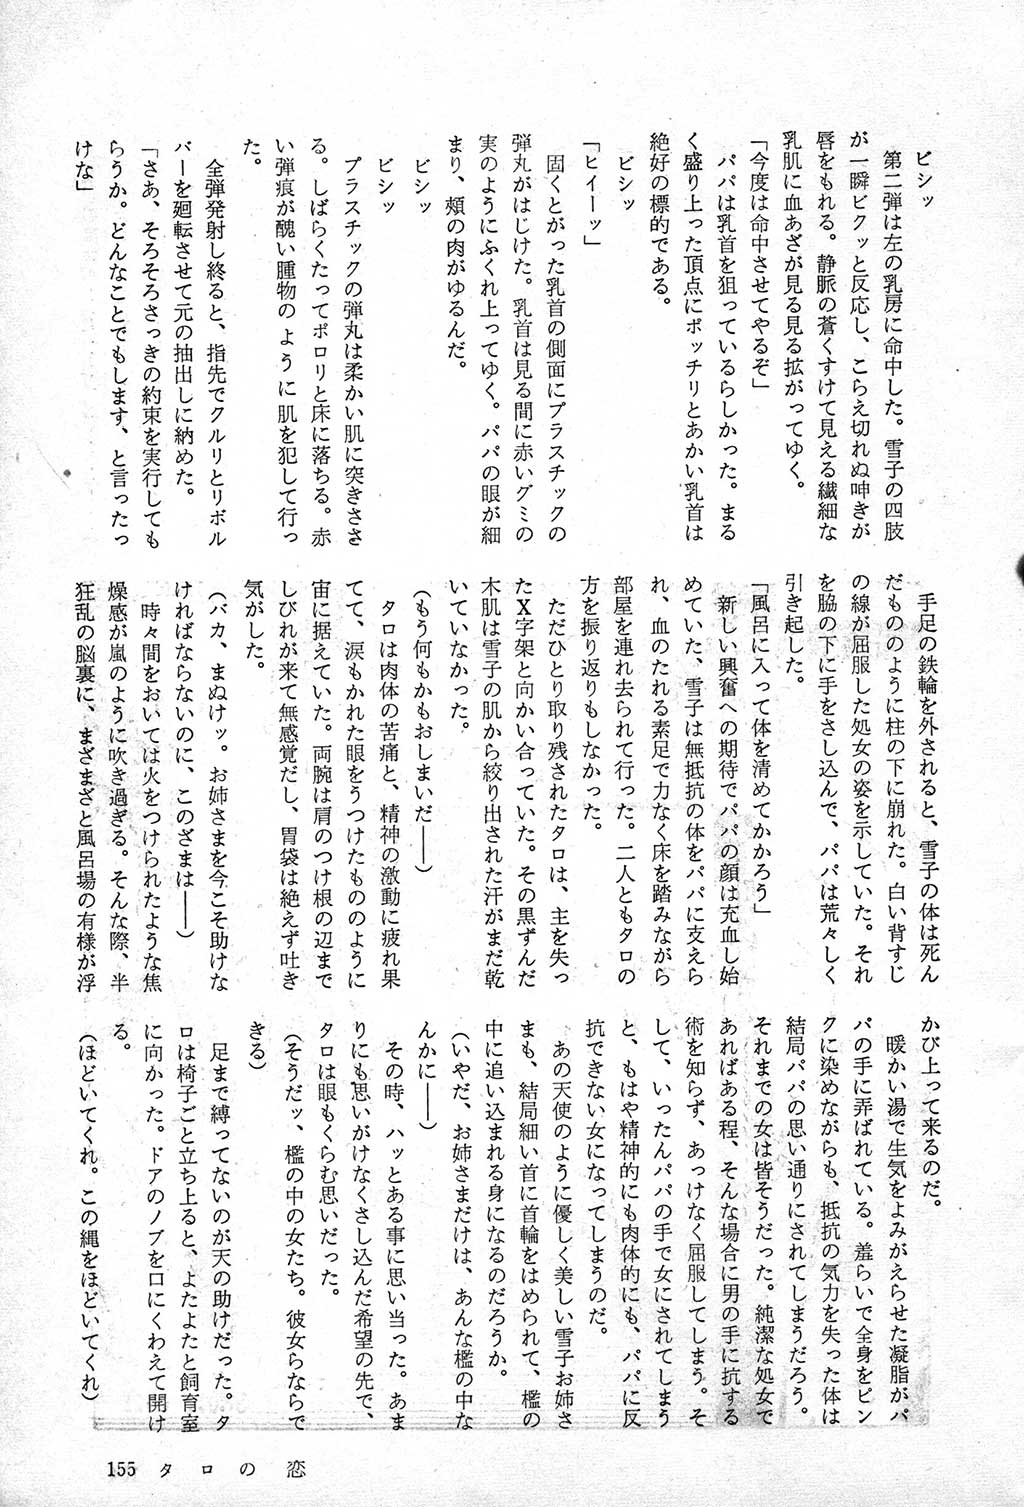 ビシッ
第二弾は左の乳房に命中した。雪子の四肢
が一瞬ビクッと反応し、こらえ切れぬ呻きが
唇をもれる。静脈の蒼くすけて見える繊細な
乳肌に血あざが見る見る拡がってゆく。
「今度は命中させてやるぞ」
パパは乳首を狙っているらしかった。まる
く盛り上った頂点にポッチリとあかい乳首は
絶好の標的である。
ビシッ
「ヒイーッ」
固くとがった乳首の側面にプラスチックの
弾丸がはじけた。乳首は見る間に赤いグミの
実のようにふくれ上ってゆく。パパの眼が細
まり、頬の肉がゆるんだ。
ビシッ
ビシッ
プラスチックの弾丸は柔かい肌に突きささ
る。しばらくたってポロリと床に落ちる。赤
い弾痕が醜い腫物のように肌を犯して行っ
た。
全弾発射し終ると、指先でクルリとリボル
バーを廻転させて元の抽出しに納めた。
「さあ、そろそろさっきの約束を実行しても
らうか。どんなことでもします、と言ったっ
けな」
手足の鉄輪を外されると、雪子の体は死ん
だもののように柱の下に崩れた。白い背すじ
の線が屈服した処女の姿を示していた。それ
を脇の下に手をさし込んで、パパは荒々しく
引き起した。
「風呂に入って体を清めてかかろう」
新しい興奮への期待でパパの顔は充血し始
めていた、雪子は無抵抗の体をパパに支えら
れ、血のたれる素足で力なく床を踏みながら
部屋を連れ去られて行った。二人ともタロの
方を振り返りもしなかった。
ただひとり取り残されたタロは、主を失っ
たX字架と向かい合っていた。その黒ずんだ
木肌は雪子の肌から絞り出された汗がまだ乾
いていなかった。
（もう何もかもおしまいだ――）
タロは肉体の苦痛と、精神の激動に疲れ果
てて、涙もかれた眼をうつけたもののように
宙に据えていた。両腕は肩のつけ根の辺まで
しびれが来て無感覚だし、胃袋は絶えず吐き
気がした。
（バカ、まぬけッ。お姉さまを今こそ助けな
ければならないのに、このざまは――）
時々間をおいては火をつけられたような焦
燥感が嵐のように吹き過ぎる。そんな際、半
狂乱の脳裏に、まざまざと風呂場の有様が浮
かび上って来るのだ。
暖かい湯で生気をよみがえらせた凝脂がパ
パの手に弄ばれている。羞らいで全身をピン
クに染めながらも、抵抗の気力を失った体は
結局パパの思い通りにされてしまうだろう。
それまでの女は皆そうだった。純潔な処女で
あればある程、そんな場合に男の手に抗する
術を知らず、あっけなく屈服してしまう。そ
して、いったんパパの手で女にされてしまう
と、もはや精神的にも肉体的にも、パパに反
抗できない女になってしまうのだ。
あの天使のように優しく美しい雪子お姉さ
まも、結局細い首に首輪をはめられて、檻の
中に追い込まれる身になるのだろうか。
（いやだ、お姉さまだけは、あんな檻の中な
んかに――）
その時、ハッとある事に思い当った。あま
りにも思いがけなくさし込んだ希望の先で、
タロは眼もくらむ思いだった。
（そうだッ、檻の中の女たち。彼女らならで
きる）
足まで縛ってないのが天の助けだった。タ
ロは椅子ごと立ち上ると、よたよたと飼育室
に向かった。ドアのノブを口にくわえて開け
る。
（ほどいてくれ。この縄をほどいてくれ）
155 タロの恋